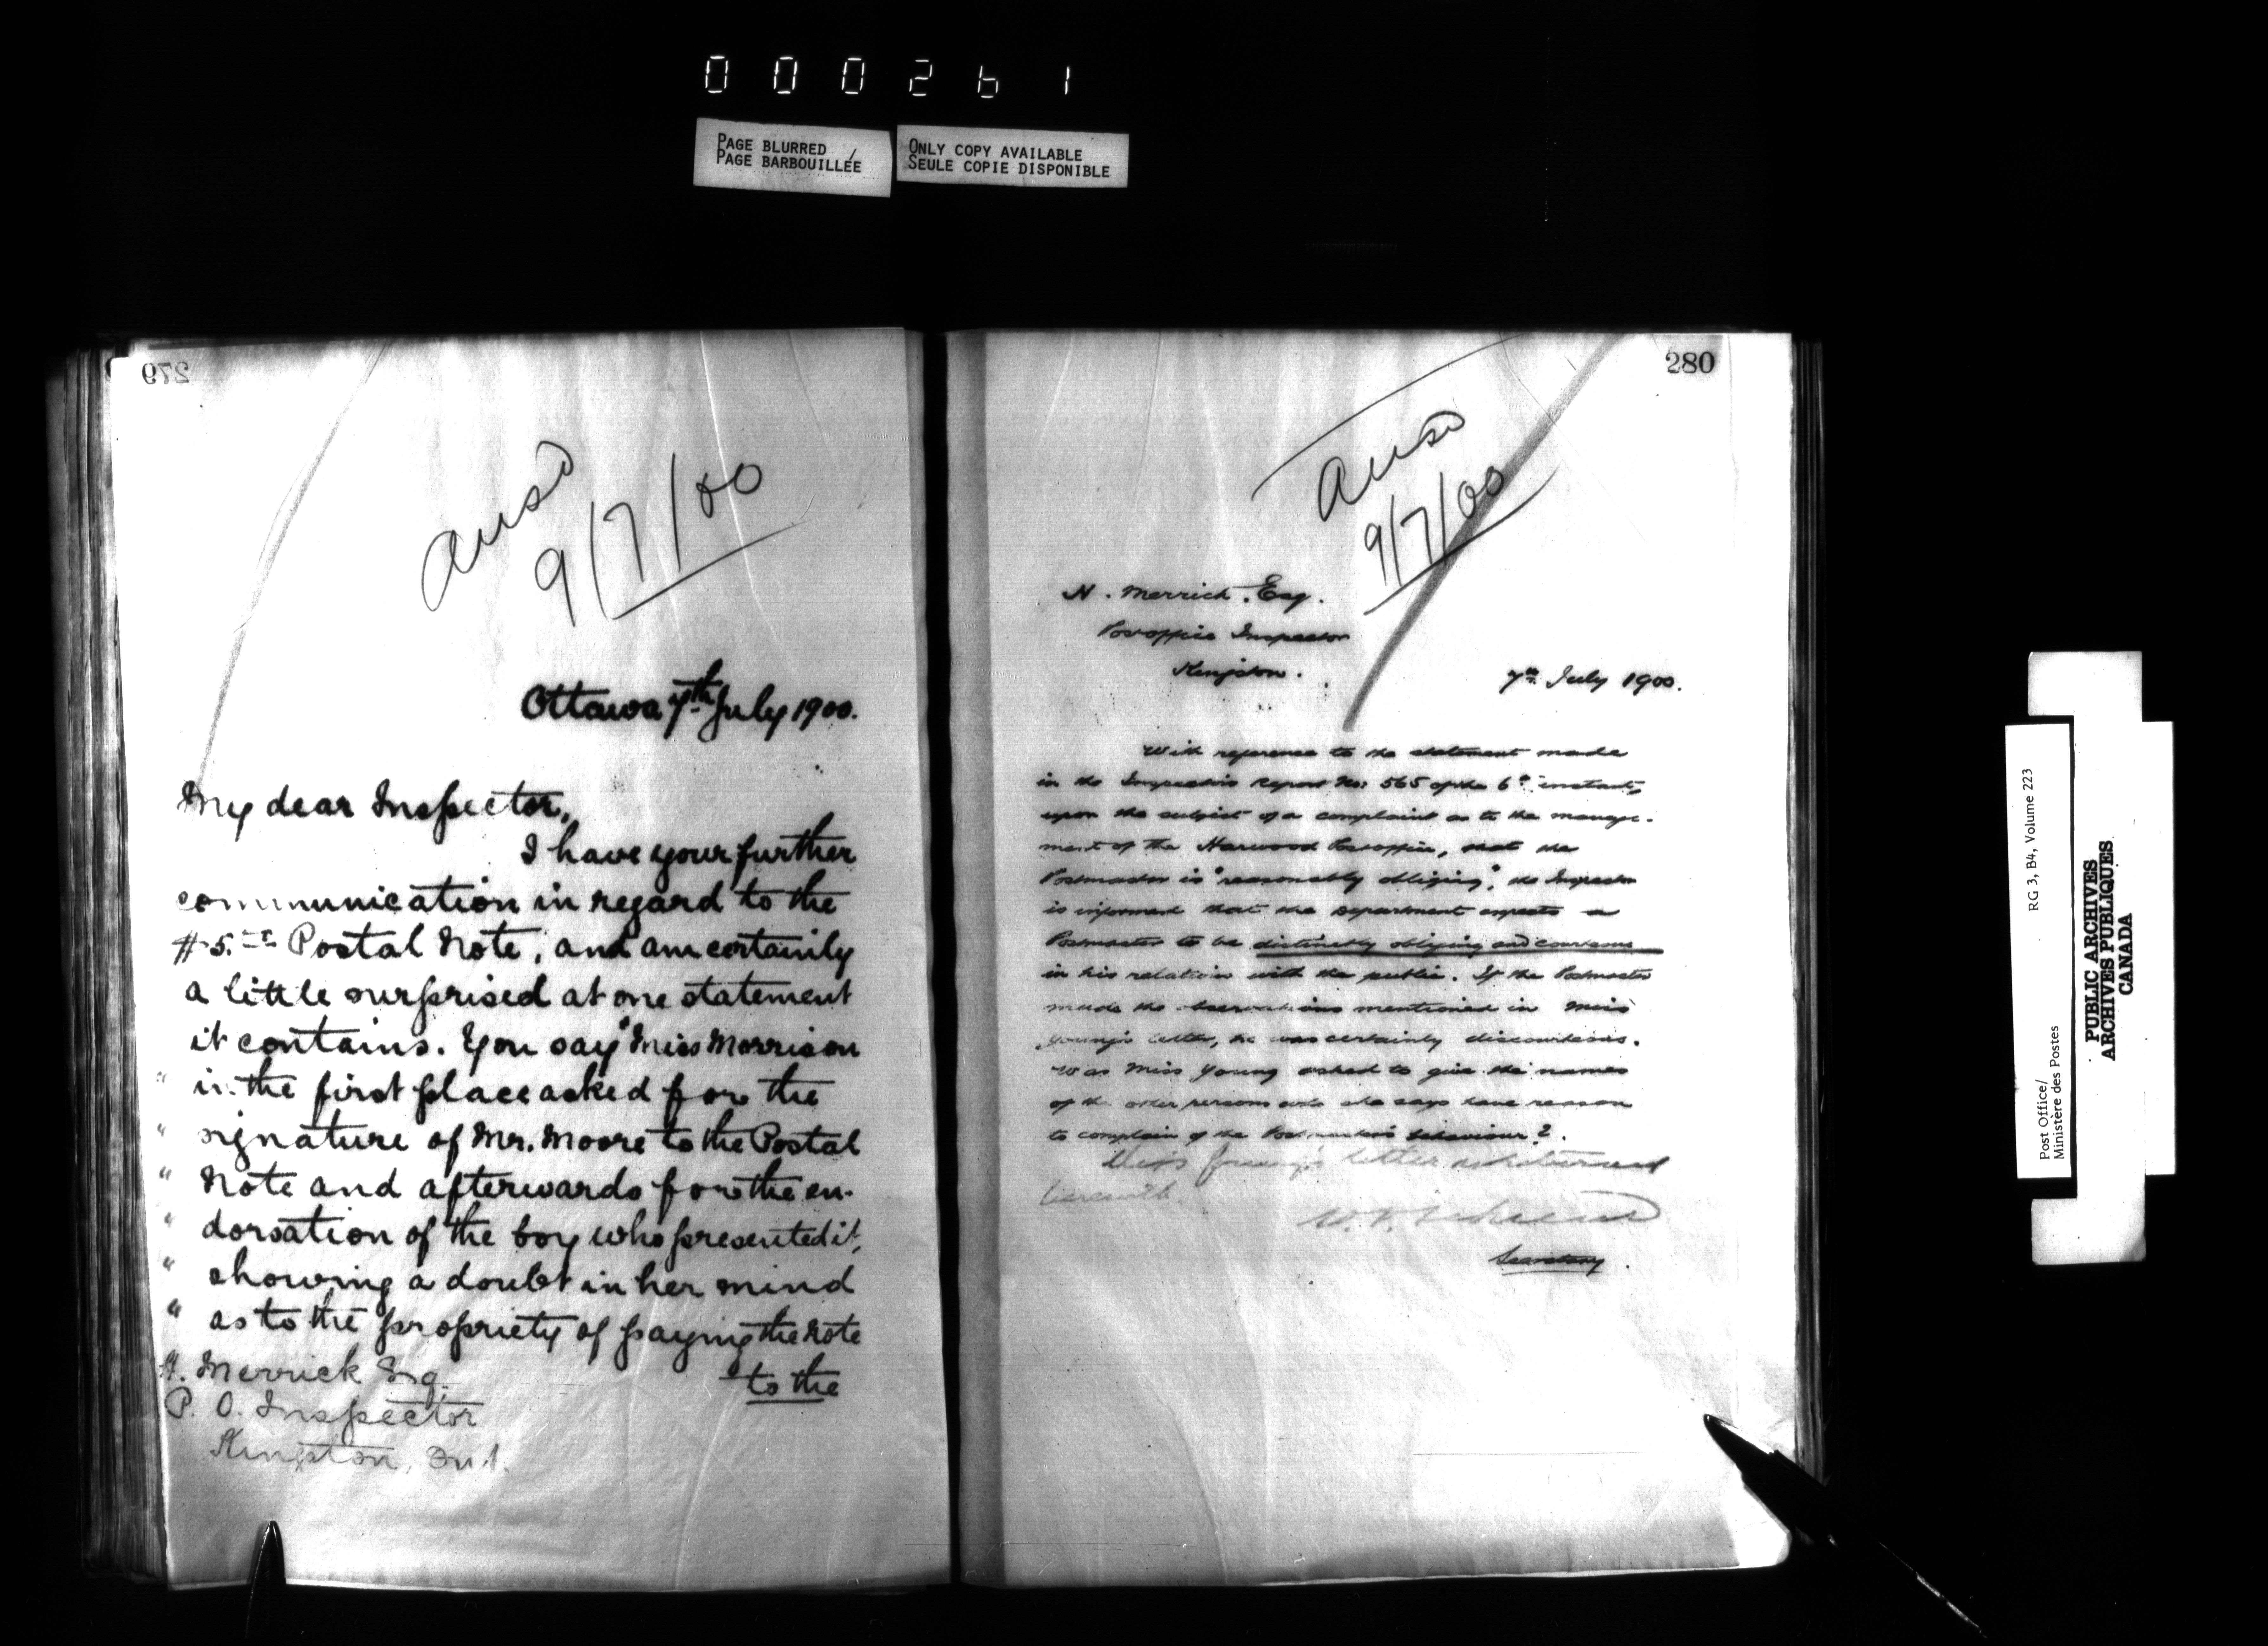 000261
PAGE BLURRED
PAGE BARBOUILLÉE
ONLY COPY AVAILABLE
SEULE COPIE DISPONIBLE
279
ansd
9/7/00
Ottawa 7th July 1900.
My dear Inspector,
I have your further
communication in regard to the
#5. Postal Note, and am certainly
a little surprised at one statement
it contains. You say "Miss Morrison
" in the first place asked for the
" signature of Mr. Moore to the Postal
" Note and afterwards for the en-
" dorsation of the boy who presented it,
" showing a doubt in her mind
" as to the propriety of paying the Note
to the
H. Merrick Esq.
P. O. Inspector
Kingston, Ont.
280
ansd
9/7/00
H. Merrick, Esq.
Postoffice Inspector
Kingston.
7th July 1900.
With reference to the statement made
in the Inspector's Report No: 565 of the 6th instant,
upon the subject of a complaint as to the manage-
ment of the Harwood Postoffice, that the
Postmaster is "reasonably obliging", the Inspector
is informed that the Department expects a
Postmaster to be distinctly obliging and courteous
in his relation with the public. If the Postmaster
made the observations mentioned in Miss
Young's letter, he was certainly discourteous.
Was Miss Young asked to give the names
of the other persons who she says have reason
to complain of the Postmaster's behaviour?.
Miss Young's letter is returned
herewith.
Secretary.
Post Office/
Ministère des Postes
RG 3, B4, Volume 223
PUBLIC ARCHIVES
ARCHIVES PUBLIQUES
CANADA